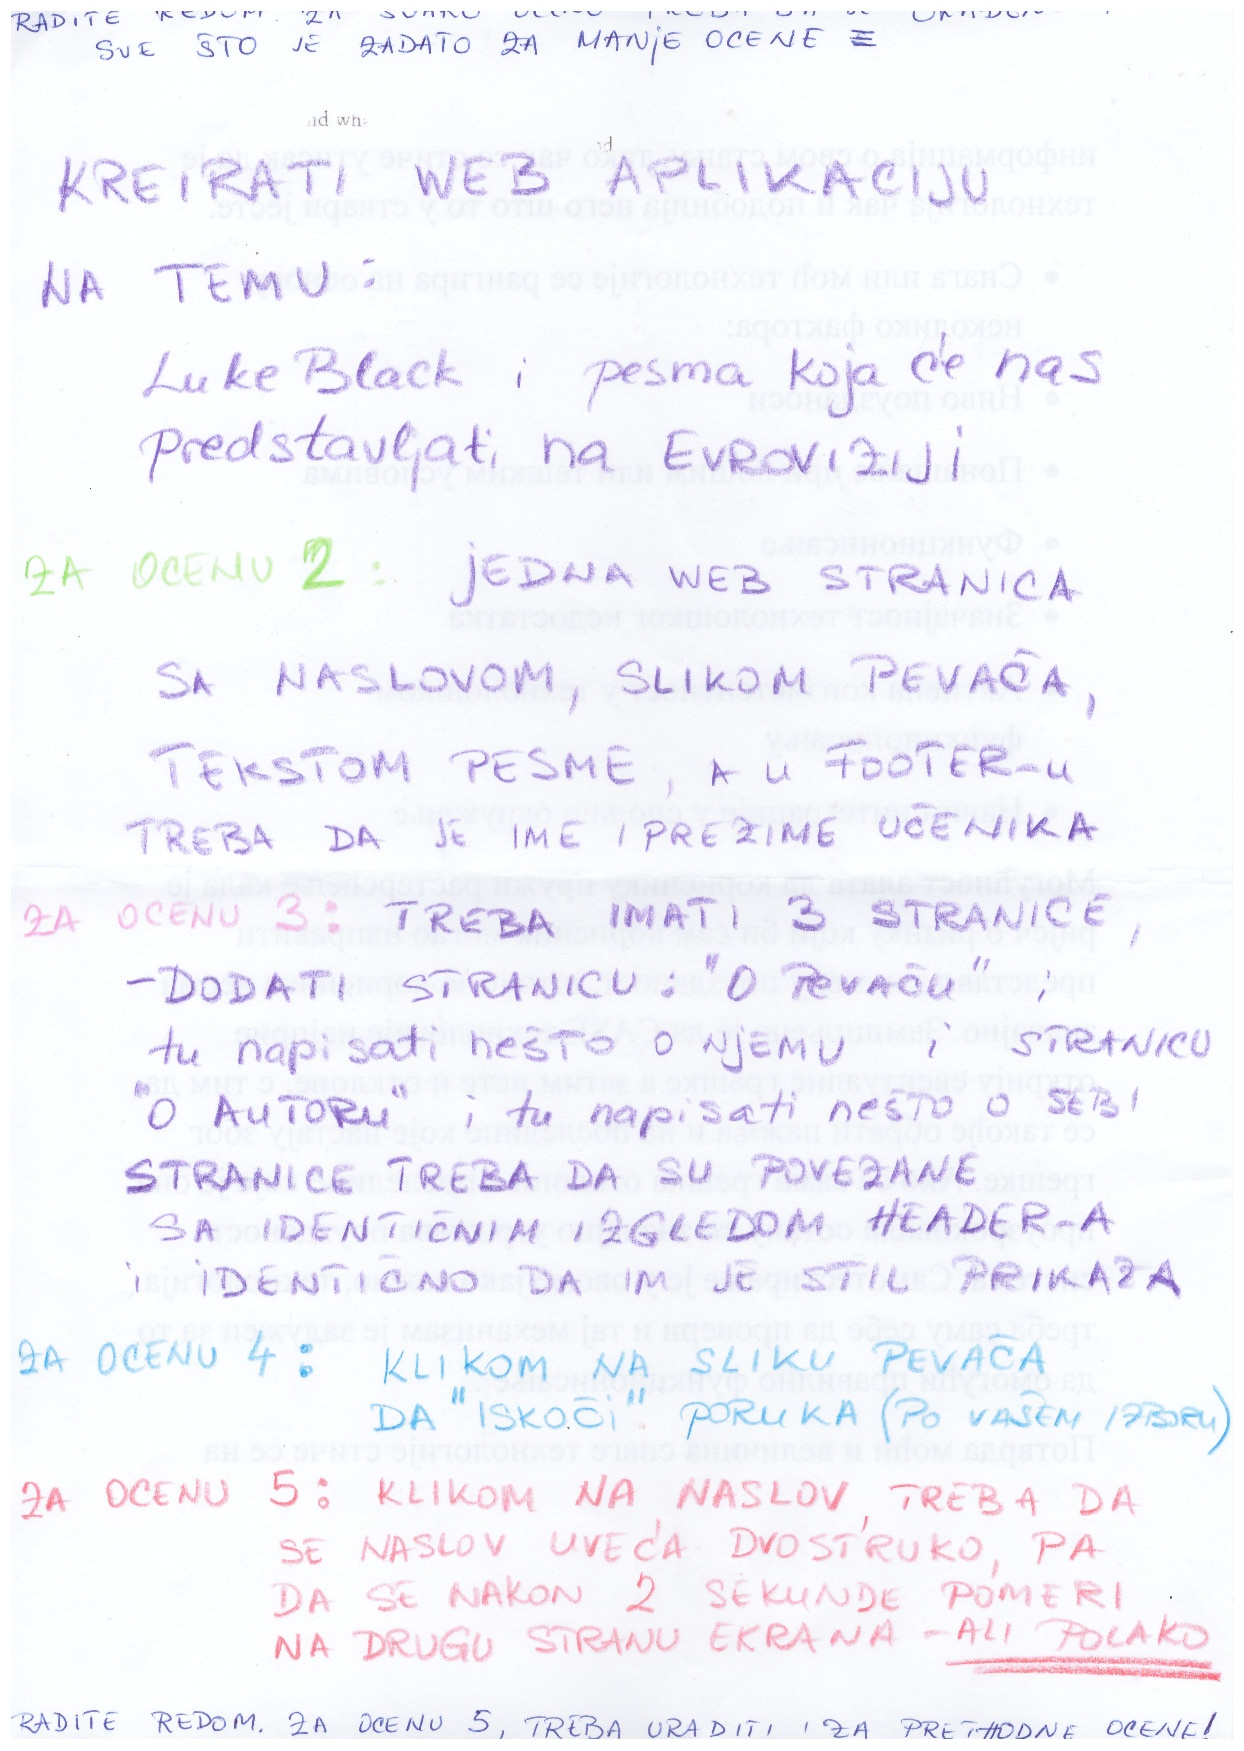 RADITE REDOM. ZA SVAKU OCENU TREBA DA JE URAĐENO
SVE ŠTO JE ZADATO ZA MANJE OCENE
nd wh
KREIRATI WEB APLIKACIJU
NA TEMU:
Luke Black i pesma koja će nas
predstavljati na EVROVIZIJI
ZA OCENU 2: JEDNA WEB STRANICA
SA NASLOVOM, SLIKOM PEVAČA,
TEKSTOM PESME, A U FOOTER-U
TREBA DA JE IME I PREZIME UČENIKA
ZA OCENU 3: TREBA IMATI 3 STRANICE,
-DODATI STRANICU: "O Pevaču" i
tu napisati nešto o NJEMU i STRANICU
"O AUTORU" i tu napisati nešto o SEBI
STRANICE TREBA DA SU POVEZANE
SA IDENTIČNIM IZGLEDOM HEADER-A
I IDENTIČNO DA IM JE STIL PRIKAZA
ZA OCENU 4: KLIKOM NA SLIKU PEVAČA
DA "ISKOČI" PORUKA (PO VAŠEM IZBORU)
ZA OCENU 5: KLIKOM NA NASLOV, TREBA DA
SE NASLOV UVEĆA DVOSTRUKO, PA
DA SE NAKON 2 SEKUNDE POMERI
NA DRUGU STRANU EKRANA - ALI POLAKO
RADITE REDOM. ZA OCENU 5, TREBA URADITI I ZA PRETHODNE OCENE!